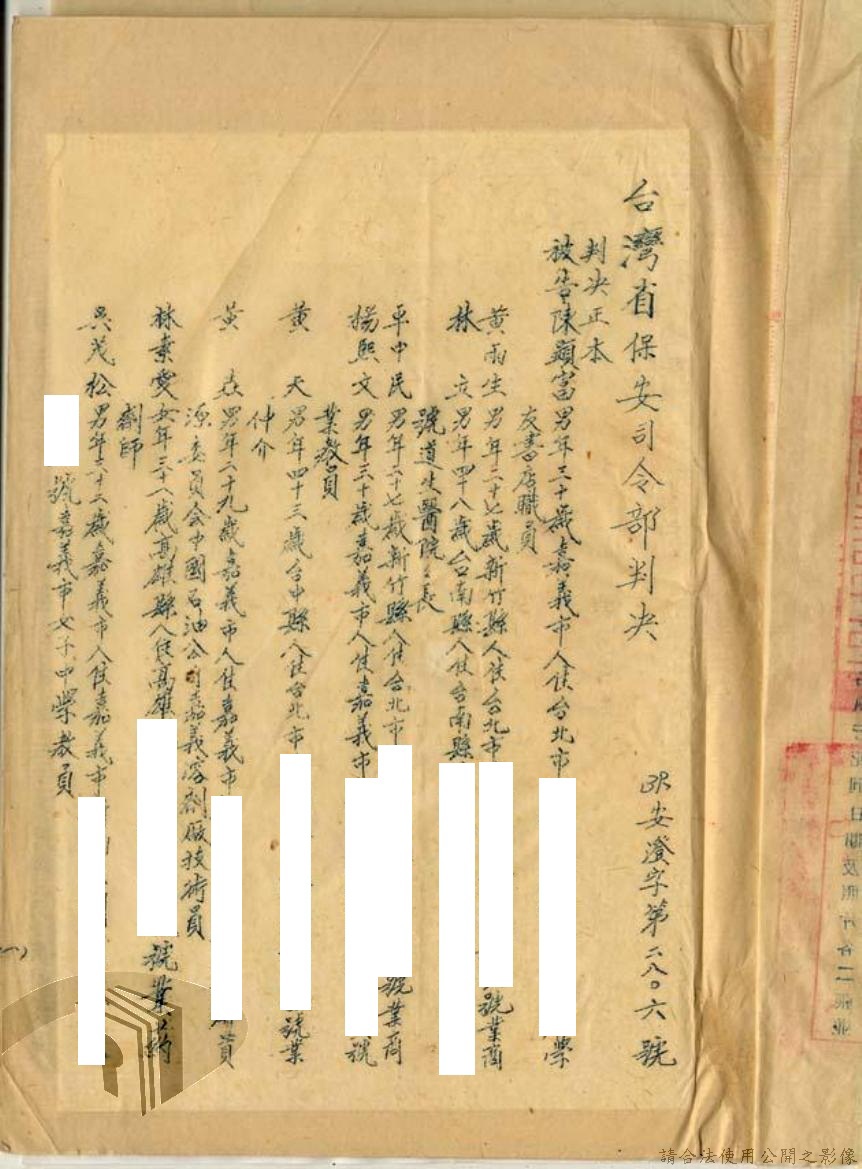 台灣省保安司令部判决
安澄字第二八〇六號
判决正本
被告陳顯富 男年三十歲嘉義市人住台北市 學
友書店職員
黃雨生 男年二十七歲新竹縣人住台北市 號業商
林 立 男年四十八歲台南縣人住台南縣
號道生醫院々長
卓中民 男年二十七歲新竹縣人住台北市 號業商
楊熙文 男年三十歲嘉義市人住嘉義市 號
業教員
黃 天 男年四十三歲台中縣人住台北市 號業
仲介
黃 垚 男年二十九歲嘉義市人住嘉義市 員
源委員会中國石油公司嘉義溶劑廠技術員
林素愛 女年三十八歲高雄縣人住高雄 號業葯
劑師
吳茂松 男年六十二歲嘉義市人住嘉義市
號嘉義市女子中學教員
(一)
請合法使用公開之影像